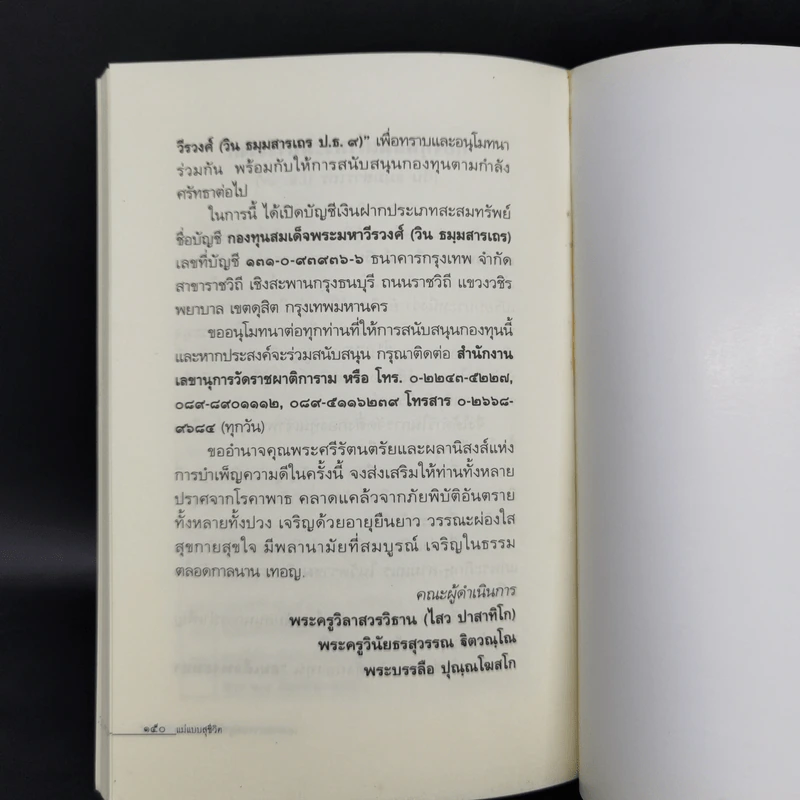 วีรวงศ์ (วิน ธมฺมสารเถร ป.ธ. ๙)" เพื่อทราบและอนุโมทนา
ร่วมกัน พร้อมกับให้การสนับสนุนกองทุนตามกำลัง
ศรัทธาต่อไป
ในการนี้ ได้เปิดบัญชีเงินฝากประเภทสะสมทรัพย์
ชื่อบัญชี กองทุนสมเด็จพระมหาวีรวงศ์ (วิน ธมฺมสารเถร)
เลขที่บัญชี ๑๓๑-๐-๙๓๙๓๖-๖ ธนาคารกรุงเทพ จำกัด
สาขาราชวิถี เชิงสะพานกรุงธนบุรี ถนนราชวิถี แขวงวชิร
พยาบาล เขตดุสิต กรุงเทพมหานคร
ขออนุโมทนาต่อทุกท่านที่ให้การสนับสนุนกองทุนนี้
และหากประสงค์จะร่วมสนับสนุน กรุณาติดต่อ สำนักงาน
เลขานุการวัดราชผาติการาม หรือ โทร. ๐-๒๒๔๓-๕๒๒๗,
๐๘๙-๘๙๐๑๑๑๒, ๐๘๙-๕๑๑๖๒๓๙ โทรสาร ๐-๒๖๖๘-
๙๖๘๔ (ทุกวัน)
ขออำนาจคุณพระศรีรัตนตรัยและผลานิสงส์แห่ง
การบำเพ็ญความดีในครั้งนี้ จงส่งเสริมให้ท่านทั้งหลาย
ปราศจากโรคาพาธ คลาดแคล้วจากภัยพิบัติอันตราย
ทั้งหลายทั้งปวง เจริญด้วยอายุยืนยาว วรรณะผ่องใส
สุขกายสุขใจ มีพลานามัยที่สมบูรณ์ เจริญในธรรม
ตลอดกาลนาน เทอญ.
คณะผู้ดำเนินการ
พระครูวิลาสวรวิธาน (ไสว ปาสาทิโก)
พระครูวินัยธรสุวรรณ ฐิตวณฺโณ
พระบรรลือ ปุณฺณโฆสโก
๑๕๐ แม่แบบสุชีวิต